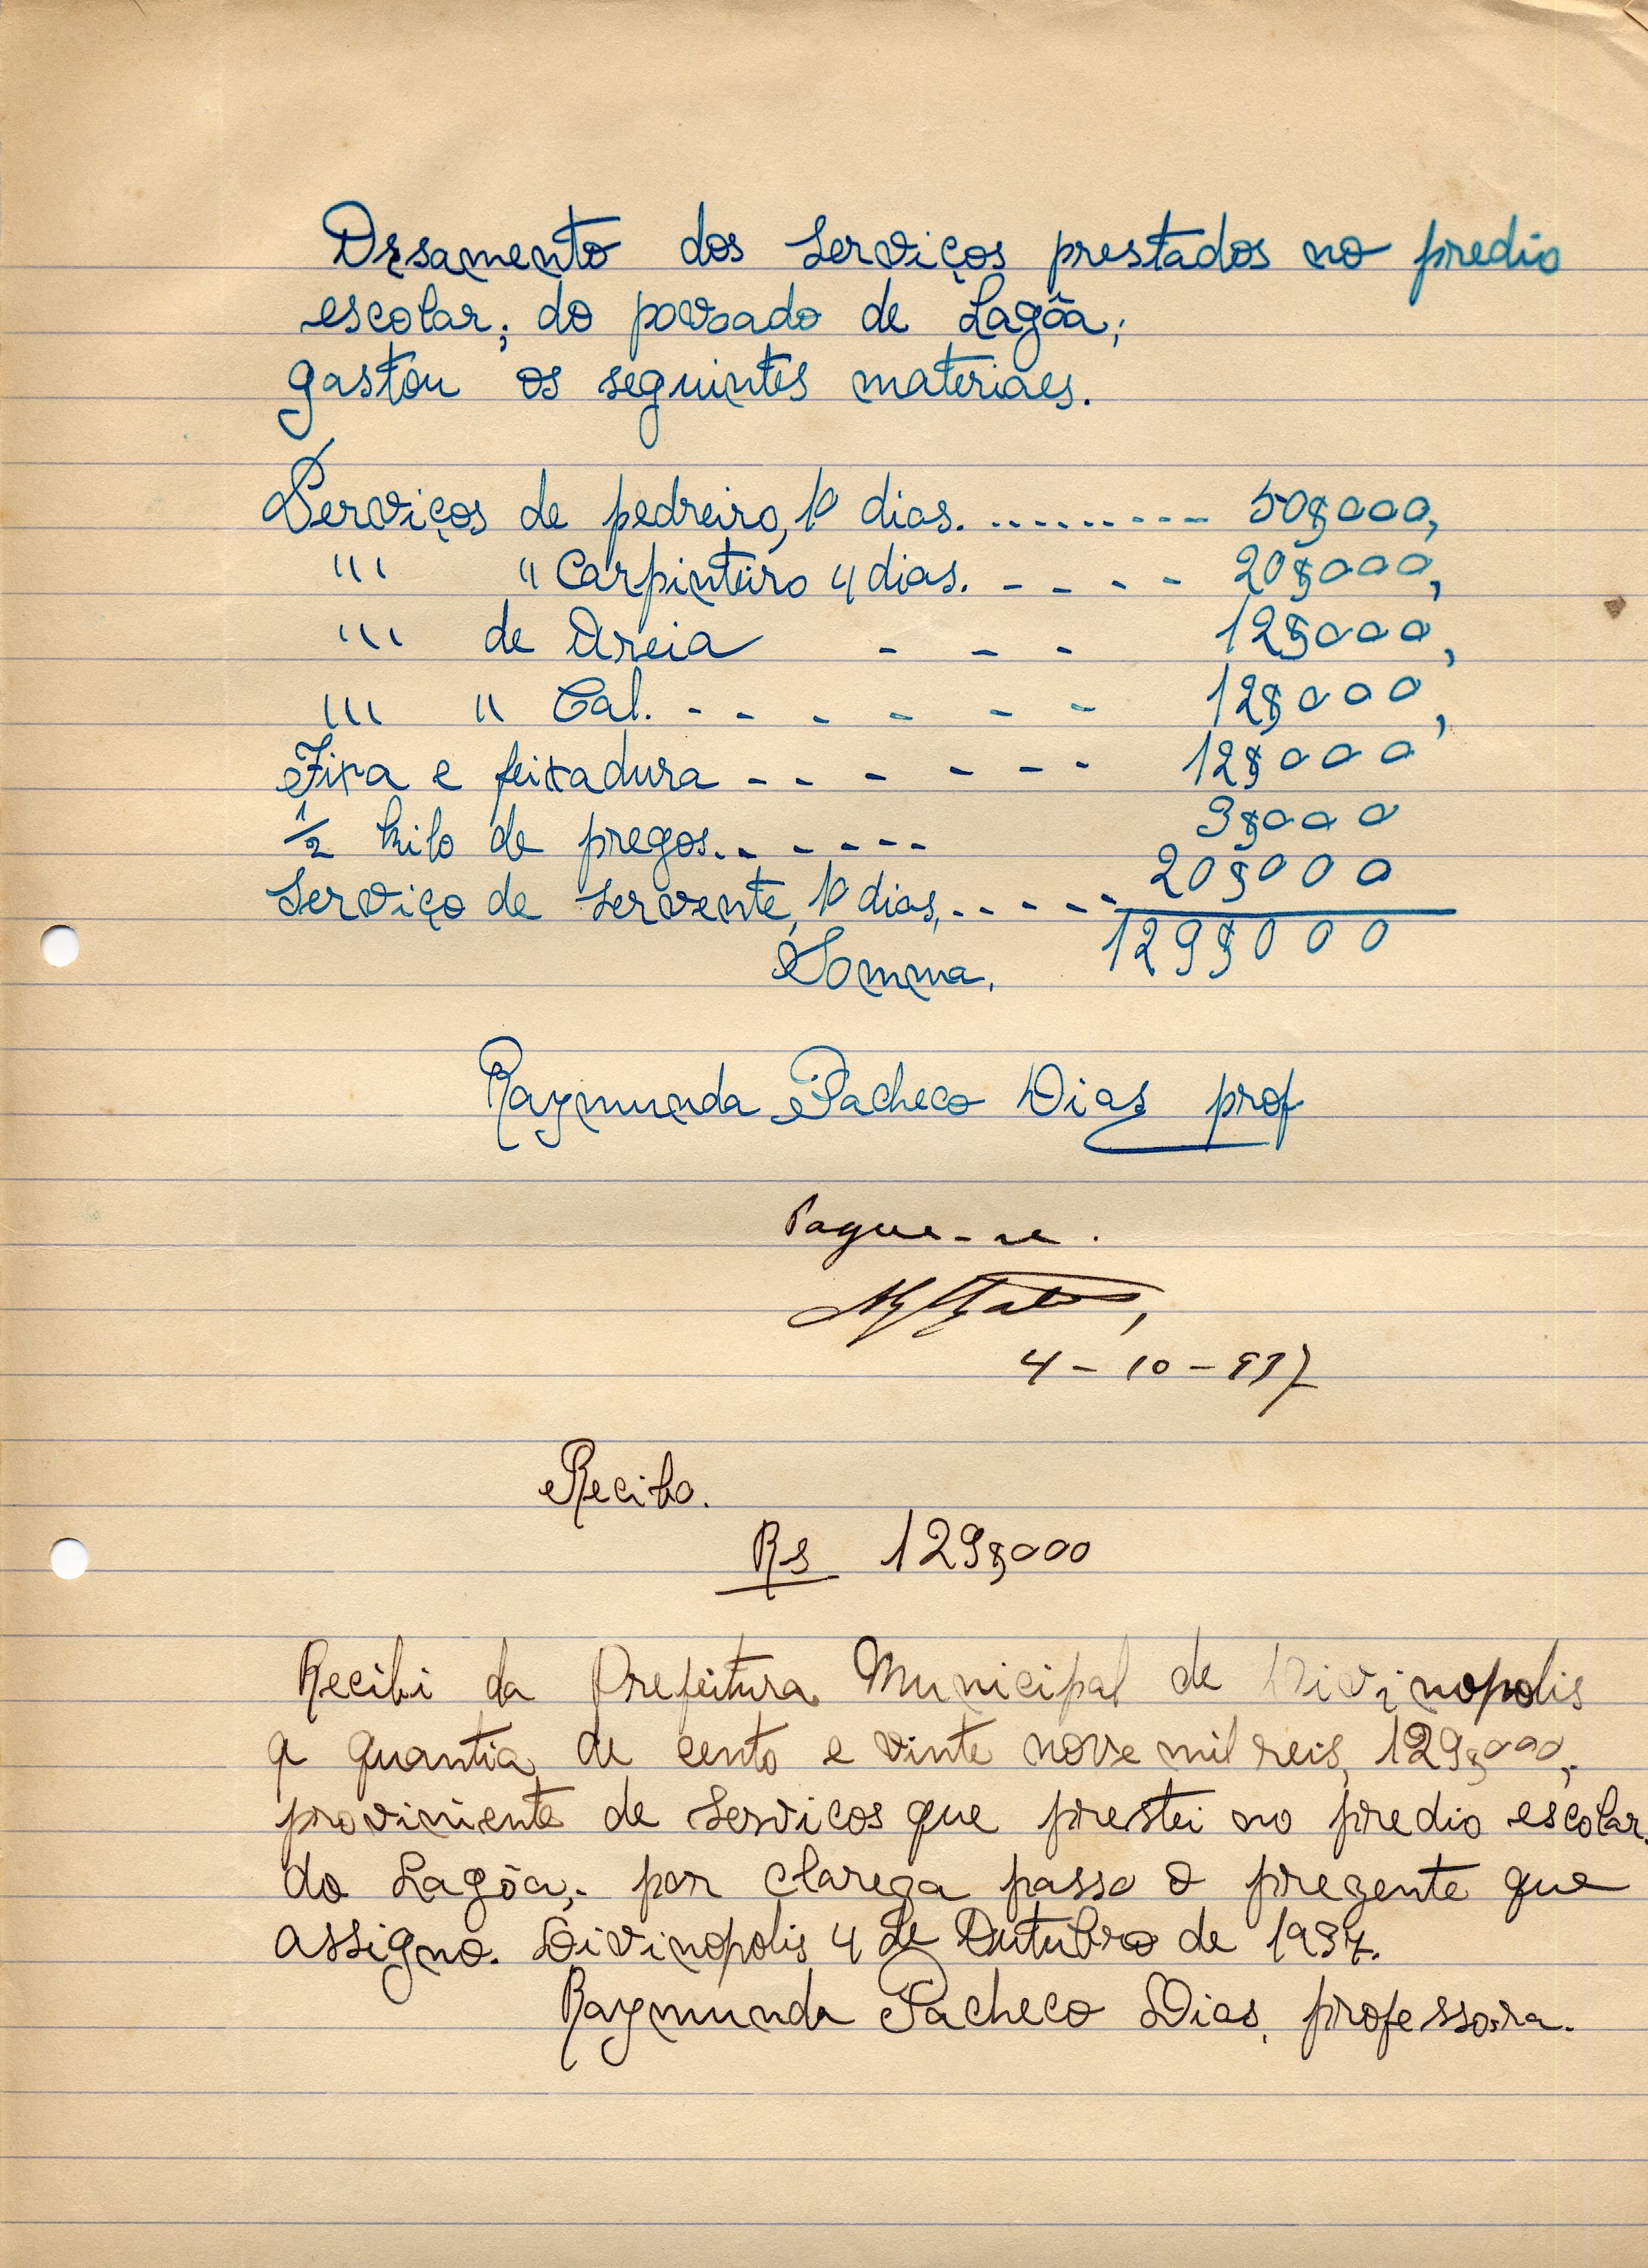 Orsamento dos serviços prestados no predio
escolar; do povoado de Lagôa;
gastou os seguintes materiaes.
Serviços de pedreiro, 10 dias. ......... 50$000,
"' " Carpinteiro 4 dias. - - - - 20$000,
"' de Areia - - - 12$000,
"' " Cal. - - - - - - 12$000,
Fixa e feixadura - - - - - - 12$000
1/2 kilo de pregos. - - - - - 3$000
Serviço de servente, 10 dias, - - - - - 20$000
Somma. 129$000
Raymunda Pacheco Dias prof
Pague-se.
4-10-937
Recibo.
Rs 129$000
Recibi da Prefeitura Municipal de Divinopolis
a quantia de cento e vinte nove mil reis, 129$000,
proviniente de servicos que prestei no predio escolar.
do Lagôa; por clareza passo o prezente que
assigno. Divinopolis 4 de Outubro de 1937.
Raymunda Pacheco Dias, professora.